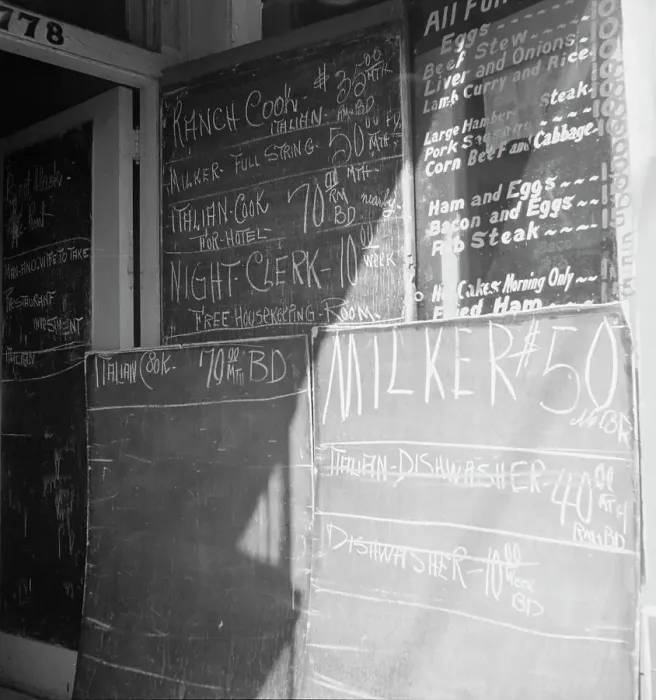 778
RANCH COOK $35.00 MTH
ITALIAN. RM. BD
MILKER- FULL STRING- 50.00 MTH
ITALIAN-COOK 70.00 MTH nearby.
FOR-HOTEL- RM BD
NIGHT-CLERK- 10.00 WEEK
FREE HOUSEKEEPING-ROOM.
All
Eggs
Beef Stew
Liver and Onions
Lamb Curry and Rice
Steak
Large Hamber
Pork Sausage
Corn Beef and Cabbage
Ham and Eggs
Bacon and Eggs
Rib Steak
Cakes Morning Only
Fried Ham
MAN-AND-WIFE TO TAKE
RESTAURANT
ITALIAN
ITALIAN COOK. 70.00 MTH BD
MILKER $50
BD
ITALIAN-DISHWASHER- 40.00
RM.BD
DISHWASHER- 10.00 WEEK
BD